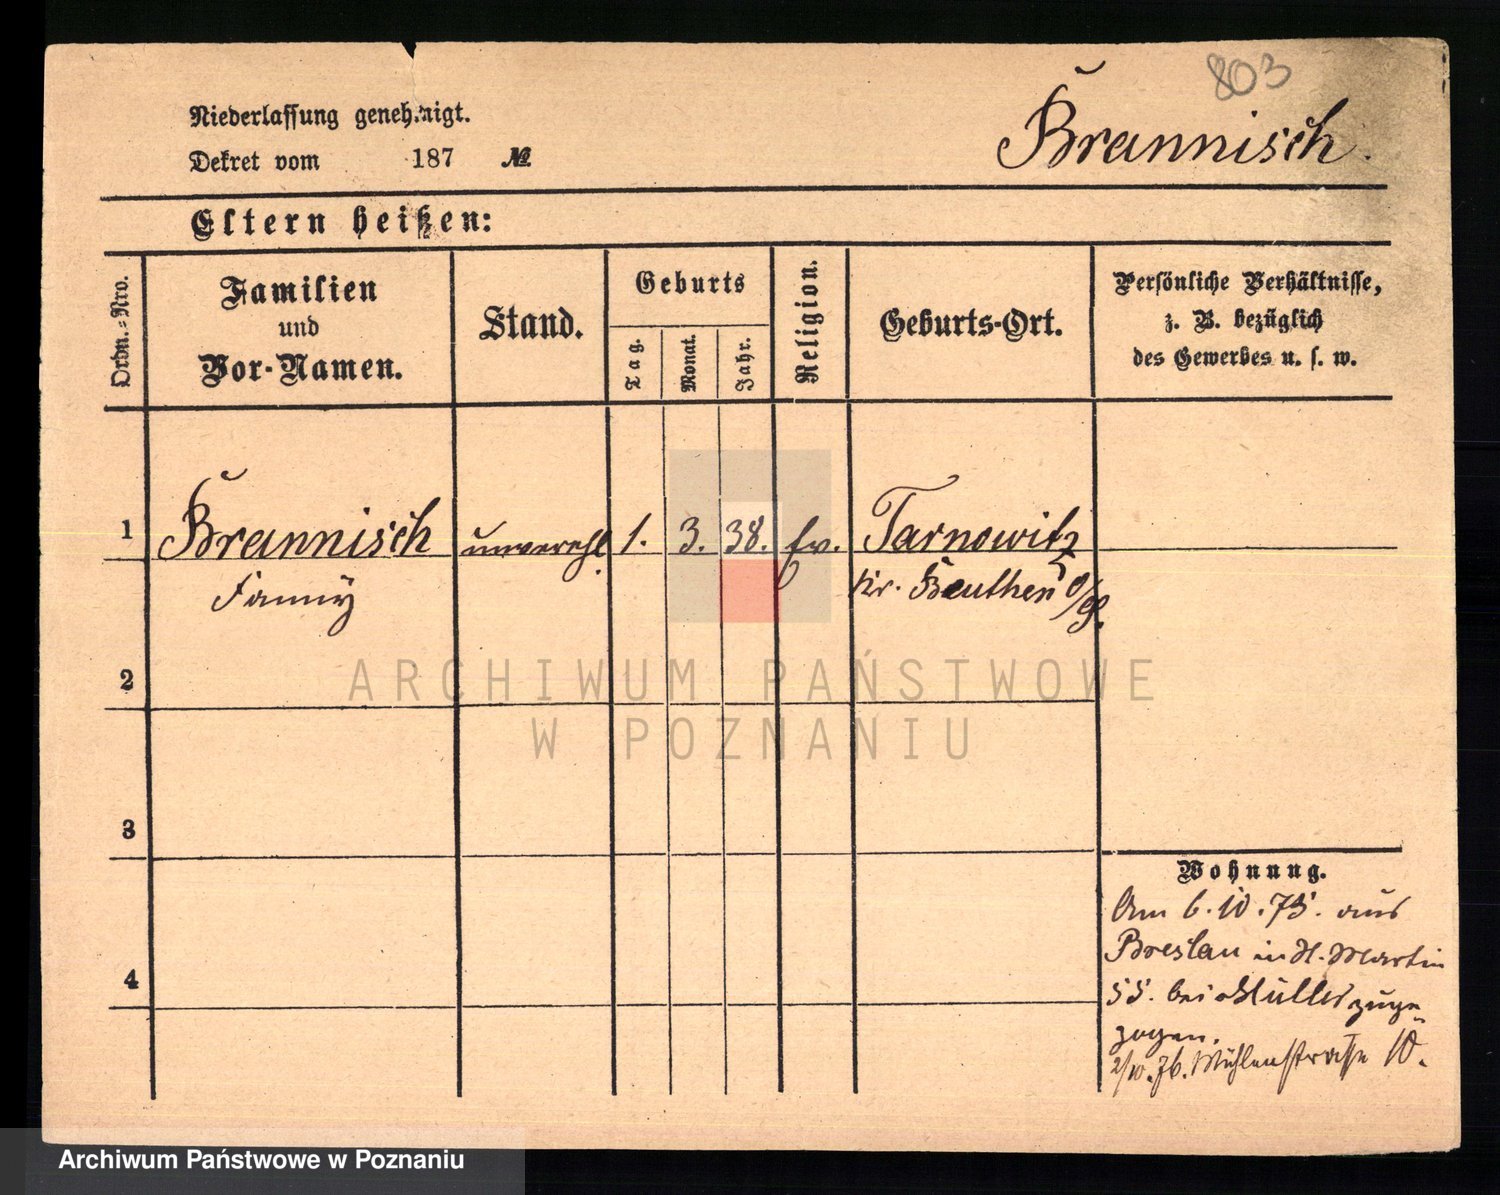 803
Niederlassung genehmigt.
Brannisch.
Dekret vom 187 №
Eltern heißen:
Ordn.-Nro.
Familien
und
Vor-Namen.
Stand.
Geburts
Tag.
Monat.
Jahr.
Religion.
Geburts-Ort.
Persönliche Verhältnisse,
z. B. bezüglich
des Gewerbes u. s. w.
1 Brannisch unverehl. 1. 3. 38. Tarnowitz
Fanny Kr. Beuthen O/S.
2
ARCHIWUM PAŃSTWOWE
W POZNANIU
3
Wohnung.
Am 6.10.75. aus
Breslau in St. Martin
4
55. bei Müller zuge-
zogen.
2/10.76. Mühlenstraße 10.
Archiwum Państwowe w Poznaniu